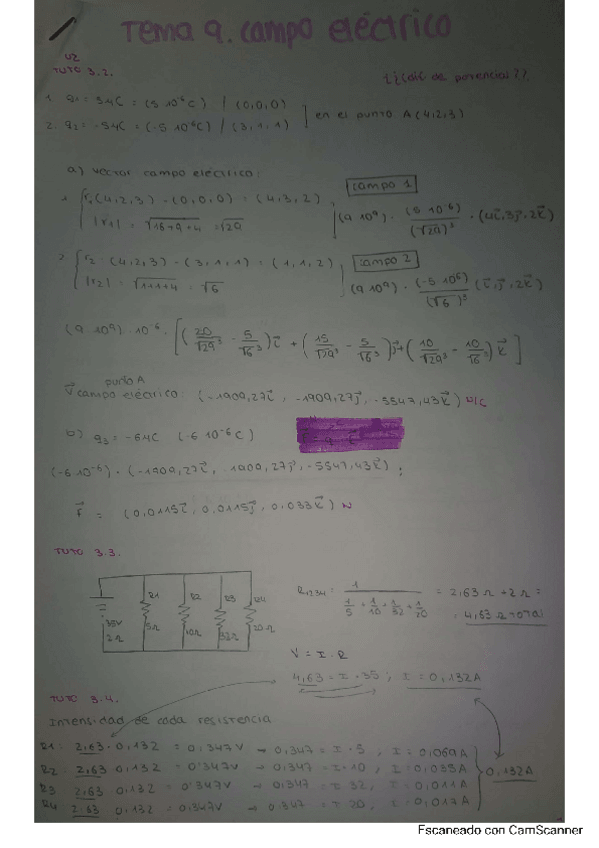 Tema 9. campo eléctrico
U2
TUTO 3.2.
de potencial??
1. q1 = 5μC = (5·10⁻⁶C) / (0,0,0)
2. q2 = -5μC = (-5·10⁻⁶C) / (3,1,1)
en el punto A (4,2,3)
a) vector campo eléctrico:
1 r1 (4,2,3) - (0,0,0) = (4,3,2)
|r1| = √16+9+4 = √29
campo 1
(9·10⁹) · (5·10⁻⁶)/(√29)³ · (4i⃗, 3j⃗, 2k⃗)
2 r2 = (4,2,3) - (3,1,1) = (1,1,2)
|r2| = √1+1+4 = √6
campo 2
(9·10⁹) · (-5·10⁻⁶)/(√6)³ (i⃗, j⃗, 2k⃗)
(9·10⁹)·10⁻⁶ · [(20/√29³ - 5/√6³)i⃗ + (15/√29³ - 5/√6³)j⃗ + (10/√29³ - 10/√6³)k⃗]
punto A
V⃗ campo eléctrico: (-1909,27i⃗, -1909,27j⃗, -5547,43k⃗) N/C
b) q3 = -6μC (-6·10⁻⁶C)
(-6·10⁻⁶) · (-1909,27i⃗, 1909,27j⃗, -5547,43k⃗);
F⃗ = (0,0115i⃗, 0,0115j⃗, 0,033k⃗) N
TUTO 3.3.
R1 R2 R3 R4
35V
2Ω
5Ω 10Ω 32Ω 20Ω
R1234: 1/(1/5 + 1/10 + 1/32 + 1/20) = 2,63Ω + 2Ω =
4,63Ω total
V = I·R
4,63 = I·35; I = 0,132A
TUTO 3.4.
Intensidad de cada resistencia
R1: 2,63·0,132 = 0,347V → 0,347 = I·5, I = 0,069A
R2: 2,63 0,132 = 0,347V → 0,347 = I·10, I = 0,035A
R3 2,63 0,132 = 0,347V → 0,347 = I 32, I = 0,011A
R4: 2,63 0,132 = 0,347V → 0,347 = I 20, I = 0,017A
0,132A
Escaneado con CamScanner